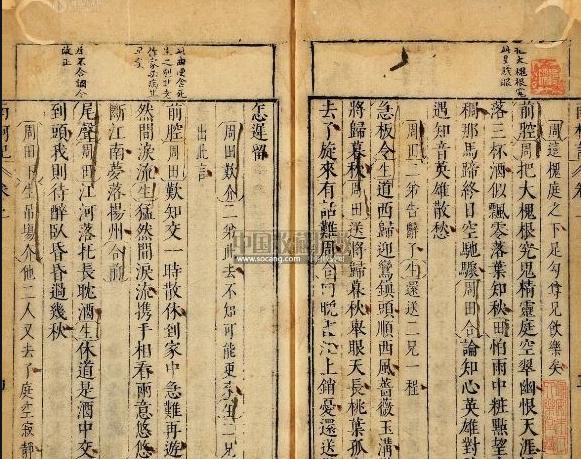 周這槐庭之下足勾尊兄飲樂矣
前腔周把大槐根究鬼精靈庭空翠幽恨天涯
落三杯酒似飄零落葉知秋田怕雨中粧點望
稠那馬蹄終日空馳驟周田合論知心英雄對
遇知音英雄散愁
周田二弟告辭了生還送二兄一程
急板令生道西歸迎鸞鎮頭順西風薔薇玉溝
將歸暮秋周田送將歸暮秋舉眼天長桃葉孤
去了旋來有話難周合向晚江上銷憂還送
怎遲留
周田歎介二弟此去不知可能更生二兄
出此言
前腔周田歎知交一時散休到家中急難再遊
然間淚流生猛然間淚流携手相看兩意悠悠
斷江南夢落楊州合前
尾聲周田江河落托長耽酒生休道是酒中交
到頭我則待醉臥昏昏過幾秋
周田下生吊場介他二人又去了庭空寂靜
www.socang.com